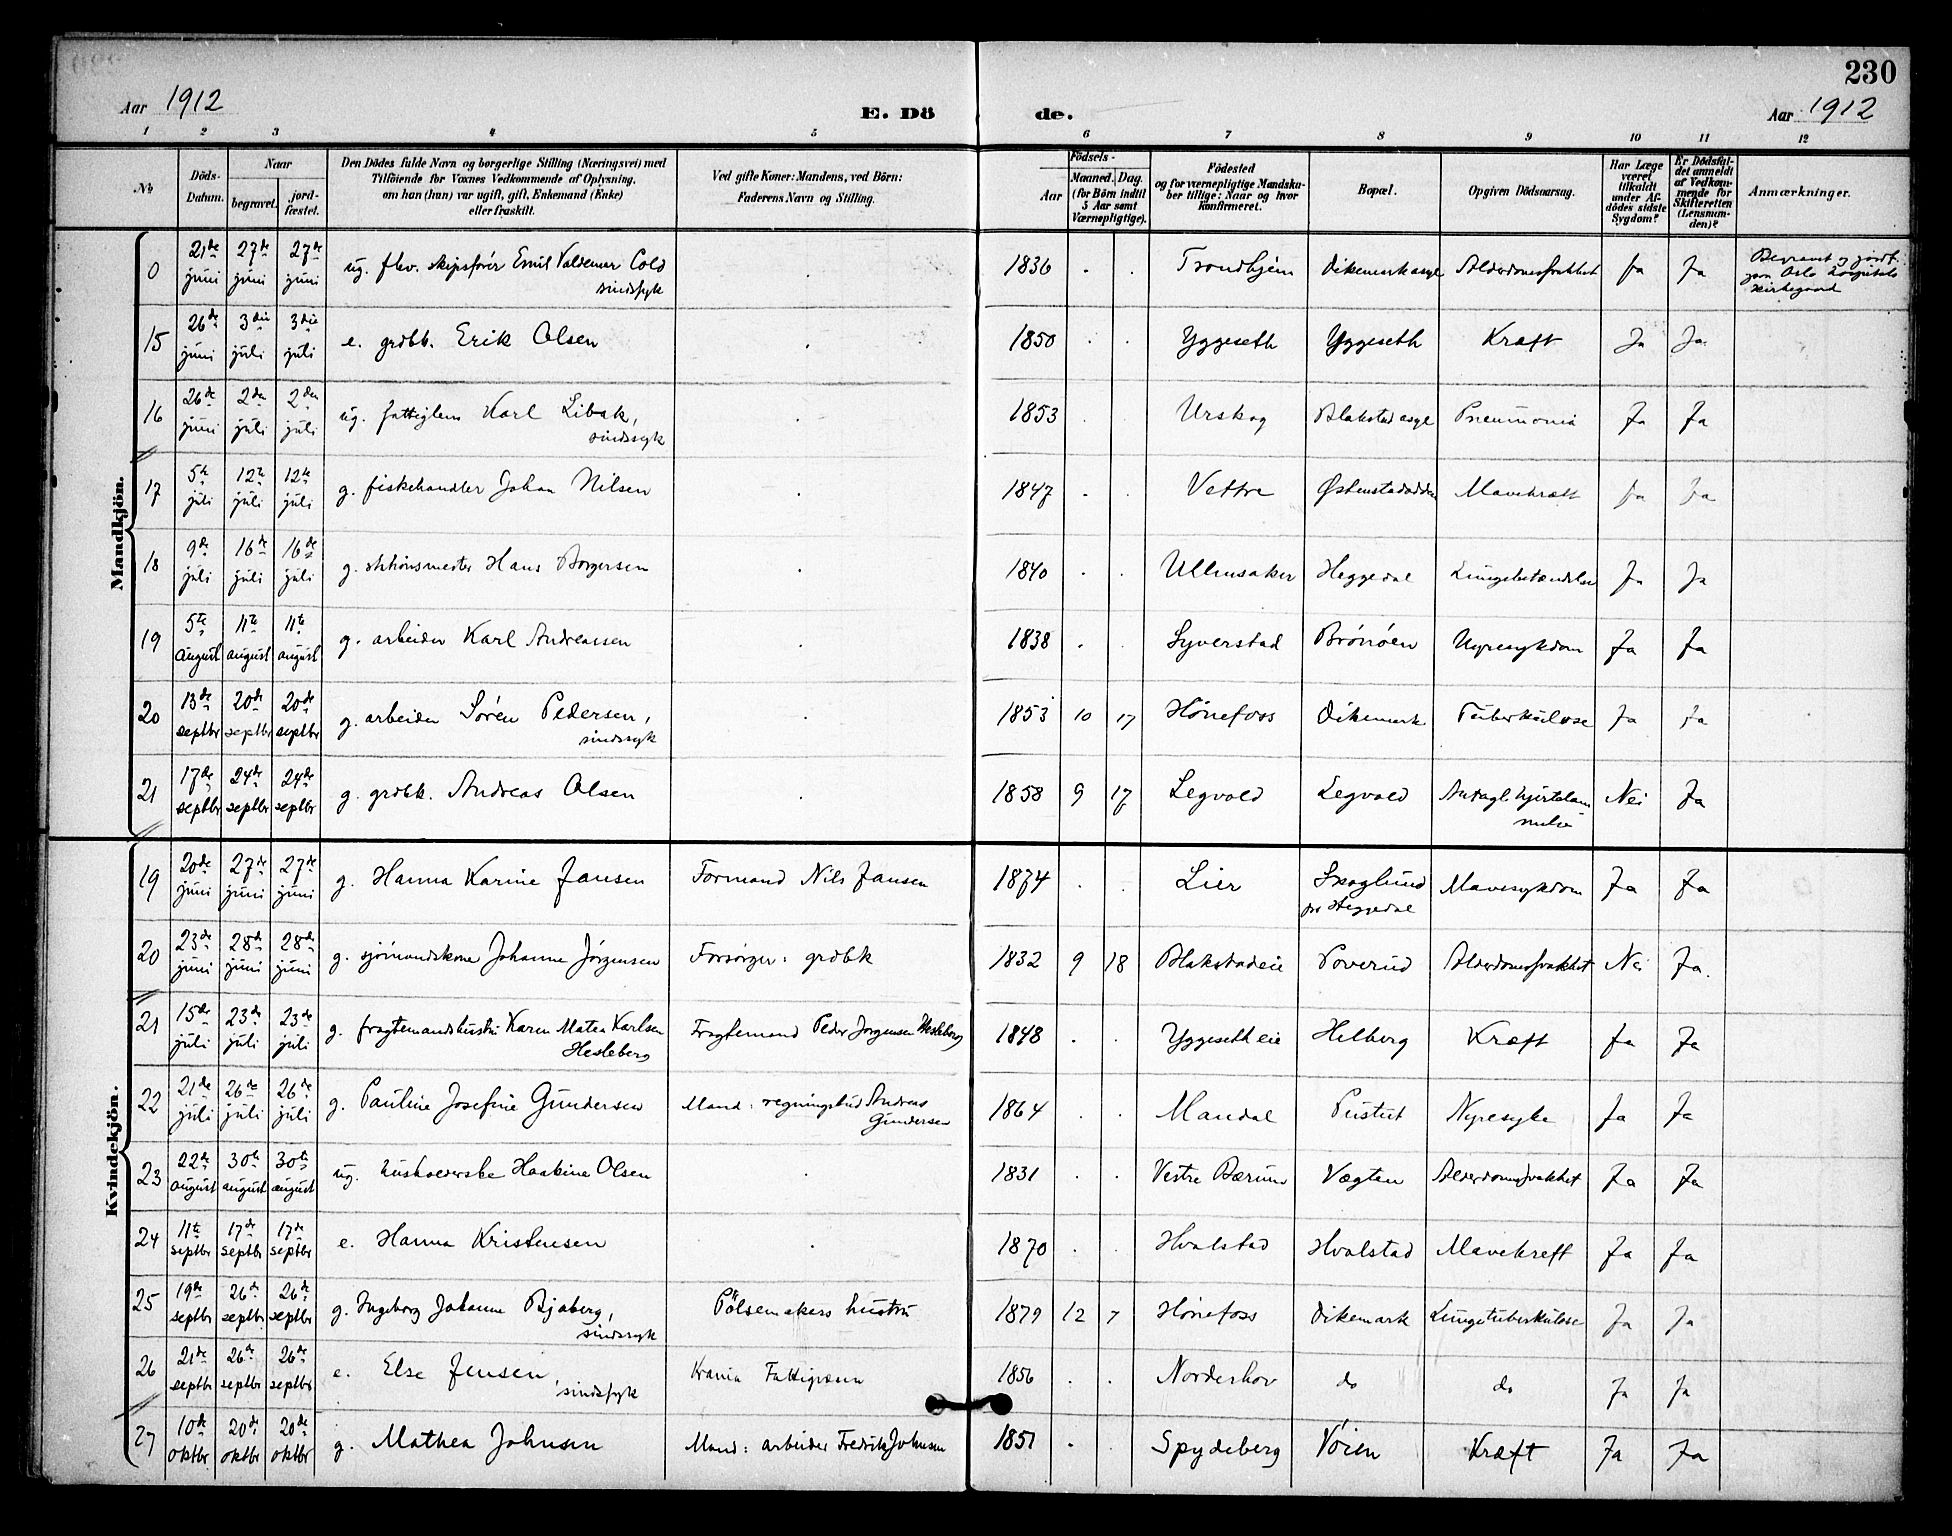 230
Aar 1912
E. Döde.
Aar 1912
1 2 3 4 5 6 7 8 9 10 11 12
No
Döds-Datum.
Naar
begravet.
jord-fæstet.
Den Dödes fulde Navn og borgerlige Stilling (Næringsvei) med
Tilföiende for Voxnes Vedkommende af Oplysning,
om han (hun) var ugift, gift, Enkemand (Enke)
eller fraskilt.
Ved gifte Koner: Mandens, ved Börn:
Faderens Navn og Stilling.
Födsels-
Aar
Maaned. Dag.
(for Börn indtil
5 Aar samt
Værnepligtige).
Födested
og for værnepligtige Mandska-
ber tillige: Naar og hvor
konfirmeret.
Bopæl.
Opgiven Dödsaarsag.
Har Læge
været
tilkaldt
under Af-
dödes sidste
Sygdom?
Er Dödsfal-
det anmeldt
af Vedkom-
mende for
Skifteretten
(Lensman-
den)?
Anmærkninger.
Mandkjön.
0 21de juni 27de juni 27de juni ug. fhv. skipsfører Emil Valdemar Cold sindsyk 1836 Trondhjem Dikemark asyl Alderdomssvakhet Ja Ja Begravet og jordf. paa Oslo Hospitals kirkegaard
15 26de juni 3die juli 3die juli e. grdbr. Erik Olsen 1850 Yggeseth Yggeseth Kræft Ja Ja
16 26de juni 2den juli 2den juli ug. fattiglem Karl Libak, sindssyk 1853 Urskog Blakstad asyl Pneumonia Ja Ja
17 5te juli 12te juli 12te juli g. fiskehandler Johan Nilsen 1847 Vettre Østenstadødden Mavekræft Ja Ja
18 9de juli 16de juli 16de juli g. Hans Borgersen 1840 Ullensaker Heggedal Lungebetændelse Ja Ja
19 5te august 11te august 11te august g. arbeider Karl Andreassen 1838 Syverstad Brønøen Nyresykdom Ja Ja
20 13de septbr 20de septbr 20de septbr g. arbeider Søren Pedersen, sindssyk 1853 10 17 Hønefoss Dikemark Tuberkulose Ja Ja
21 17de septbr 24de septbr 24de septbr g. grdbk. Andreas Olsen 1858 9 17 Legvold Legvold Antagl. hjertelammelse Nei Ja
Kvindekjön.
19 20de juni 27de juni 27de juni g. Hanna Karine Jansen Formand Nils Jansen 1874 Lier Skoglund pr Heggedal Mavesykdom Ja Ja
20 23de juni 28de juni 28de juni g. sjømandskone Johanne Jørgensen Forsørger: grdbk 1832 9 18 Blakstadeie Poverud Alderdomssvakhet Nei Ja.
21 15de juli 23de juli 23de juli g. fragtemandshustru Karen Matea Karlsen Hesleberg Fragtemand Peder Jørgensen Hesleberg 1848 Yggeseth eie Helberg Kræft Ja Ja
22 21de juli 26de juli 26de juli g. Pauline Josefine Gundersen Mand: regningsbud Andreas Gundersen 1864 Mandal Pustut Nyresyke Ja Ja
23 22de august 30te august 30te august ug. husholderske Haakine Olsen 1831 Vestre Bærum Vøgten Alderdomssvakhet Ja Ja
24 11te septbr 17de septbr 17de septbr e. Hanna Kristensen 1870 Hvalstad Hvalstad Mavekreft Ja Ja
25 19de septbr 26de septbr 26de septbr g. Ingeborg Johanne Bjaberg, sindssyk Pølsemakers hustru 1879 12 7 Hønefoss Dikemark Lungetuberkulose Ja Ja
26 21de septbr 26de septbr 26de septbr e. Else Jensen, sindssyk Krania Fattigvæsen 1856 Norderhov do do Ja Ja
27 10de oktbr 20de oktbr 20de oktbr g. Mathea Johnsen Mand: arbeider Fredrik Johnsen 1851 Spydeberg Vøien Kræft Ja Ja